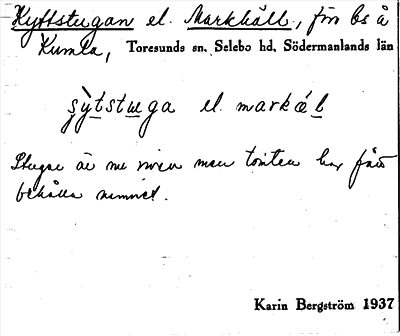 Kyttstugan el. Markhäll, förr bs å
Kumla, Toresunds sn. Selebo hd. Södermanlands län
sy̆tstuga el. markæl
Stugan är nu riven men tomten har fått
behålla namnet.
Karin Bergström 1937